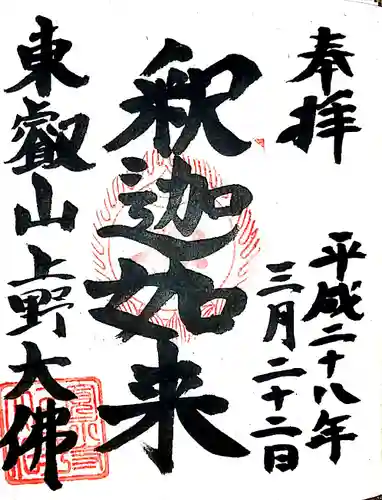 奉拝
平成二十八年
三月二十二日
釈迦如来
東叡山上野大佛